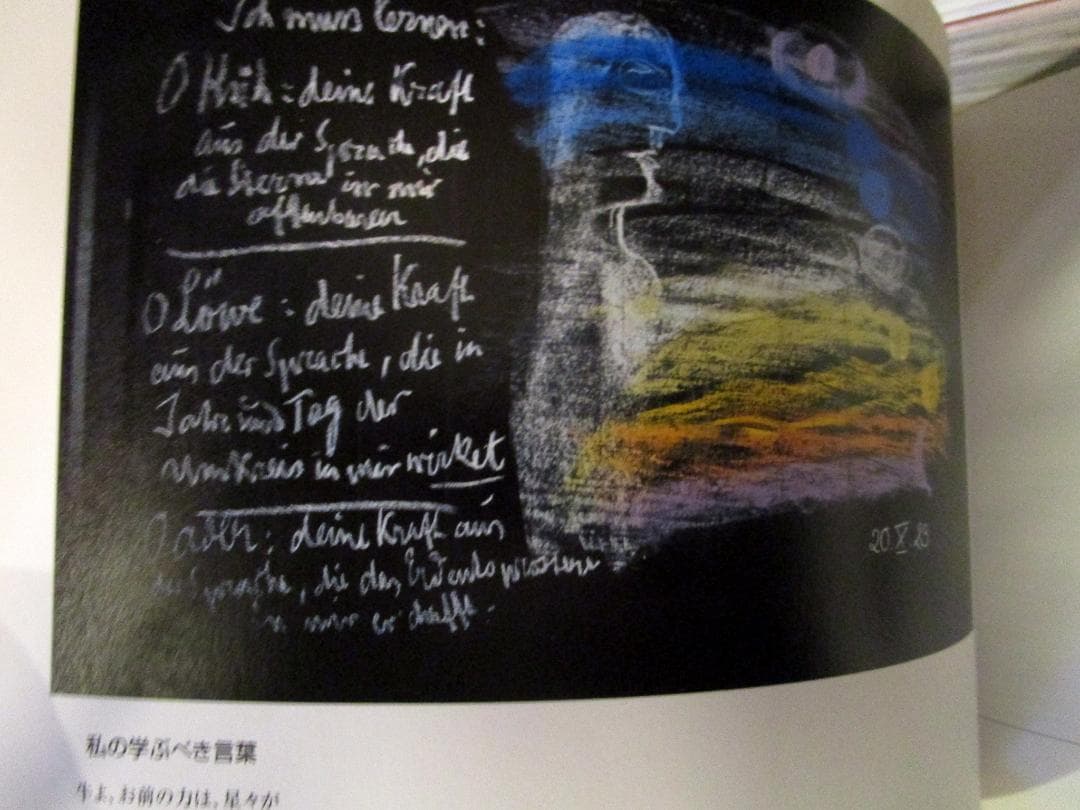 Ich muss lernen:
O Kuh: deine Kraft
aus der Sprache, die
die Sterne in mir
offenbaren
O Löwe: deine Kraft
aus der Sprache, die in
Jahr und Tag der
Umkreis in mir wirket
O Adler: deine Kraft aus
der Sprache, die das
in mir erschafft.
20 X 23
私の学ぶべき言葉
牛よ、お前の力は、星々が